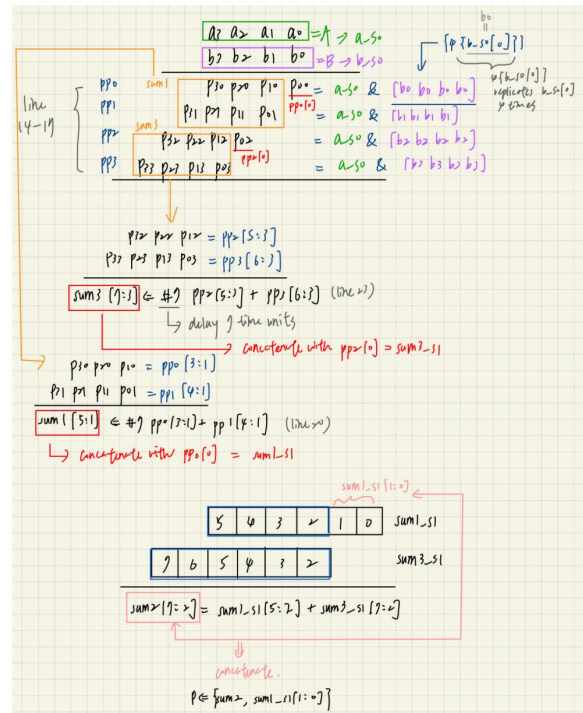 b0
||
a3 a2 a1 a0 = A → a_s0
{4{b_s0[0]}}
b3 b2 b1 b0 = B → b_s0
4{b_s0[0]}
replicates b_s0[0]
4 times
pp0 sum1 p30 p20 p10 p00 = a_s0 & [b0 b0 b0 b0]
pp0[0]
line
14-17
pp1 p31 p21 p11 p01 = a_s0 & [b1 b1 b1 b1]
pp2 sum3 p32 p22 p12 p02 = a_s0 & [b2 b2 b2 b2]
pp2[0]
pp3 p33 p23 p13 p03 = a_s0 & [b3 b3 b3 b3]
p32 p22 p12 = pp2[5:3]
p33 p23 p13 p03 = pp3[6:3]
sum3 [7:3] ⇐ #7 pp2[5:3] + pp3[6:3] (line 23)
↳ delay 7 time units
→ concatenate with pp2[0] = sum3_s1
p30 p20 p10 = pp0[3:1]
p31 p21 p11 p01 = pp1[4:1]
sum1 [5:1] ⇐ #7 pp0[3:1] + pp1[4:1] (line 20)
↳ concatenate with pp0[0] = sum1_s1
sum1_s1[1:0]
5 4 3 2 1 0 sum1_s1
7 6 5 4 3 2 sum3_s1
sum2[7:2] = sum1_s1[5:2] + sum3_s1[7:2]
concatenate.
P ⇐ {sum2, sum1_s1[1:0]}